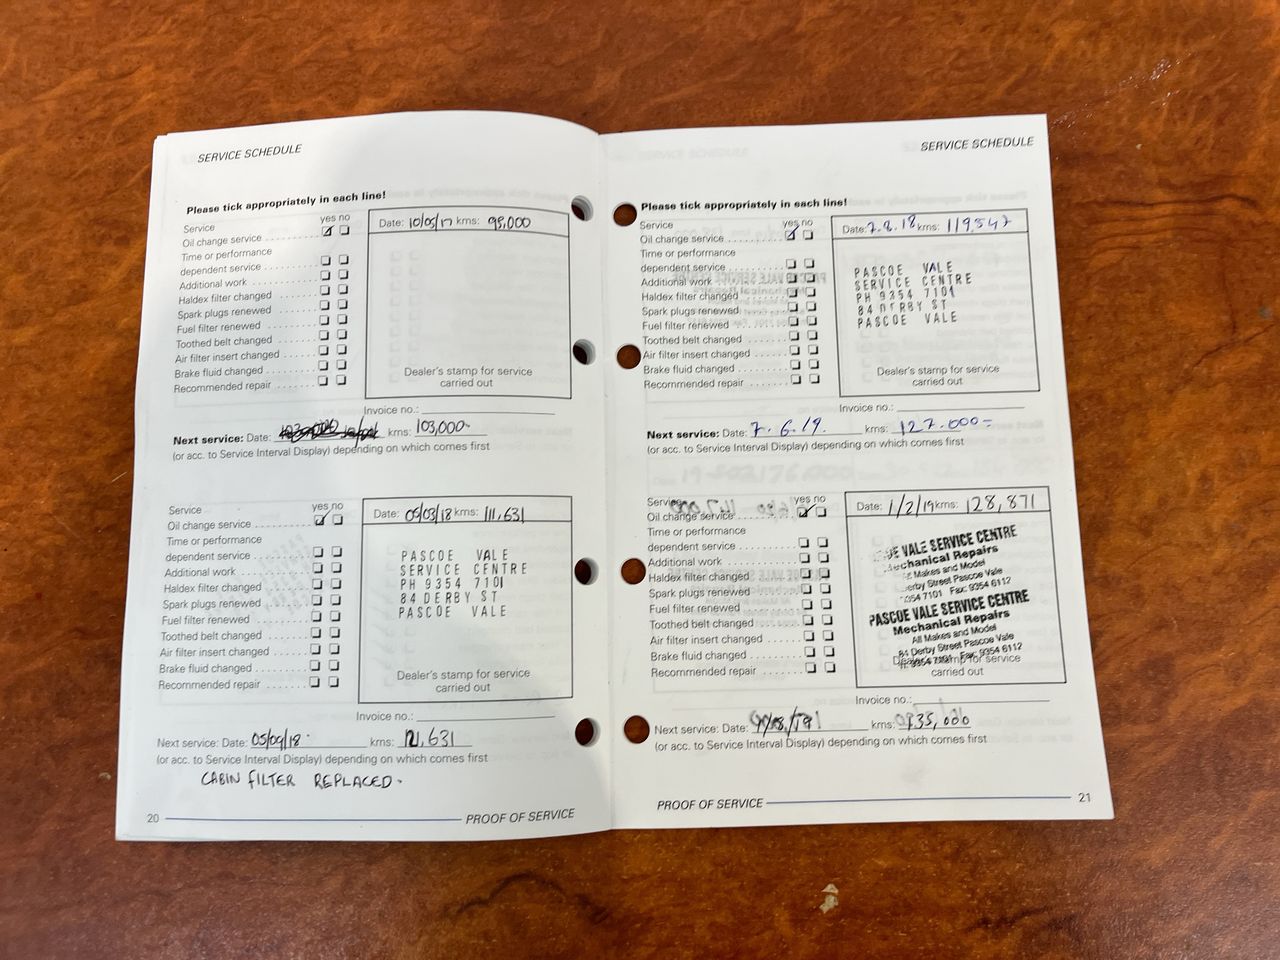 SERVICE SCHEDULE
Please tick appropriately in each line!
yes no
Service
Oil change service
Time or performance
dependent service
Additional work
Haldex filter changed
Spark plugs renewed
Fuel filter renewed
Toothed belt changed
Air filter insert changed
Brake fluid changed
Recommended repair
Date: 10/05/17 kms: 95,000
Dealer's stamp for service
carried out
Invoice no.:
Next service: Date: kms: 103,000
(or acc. to Service Interval Display) depending on which comes first
yes no
Service
Oil change service
Time or performance
dependent service
Additional work
Haldex filter changed
Spark plugs renewed
Fuel filter renewed
Toothed belt changed
Air filter insert changed
Brake fluid changed
Recommended repair
Date: 05/03/18 kms: 111,631
PASCOE VALE
SERVICE CENTRE
PH 9354 7101
84 DERBY ST
PASCOE VALE
Dealer's stamp for service
carried out
Invoice no.:
Next service: Date: 05/09/18 kms: 121,631
(or acc. to Service Interval Display) depending on which comes first
CABIN FILTER REPLACED.
20 PROOF OF SERVICE
SERVICE SCHEDULE
Please tick appropriately in each line!
yes no
Service
Oil change service
Time or performance
dependent service
Additional work
Haldex filter changed
Spark plugs renewed
Fuel filter renewed
Toothed belt changed
Air filter insert changed
Brake fluid changed
Recommended repair
Date: 7.8.18 kms: 119547
PASCOE VALE
SERVICE CENTRE
PH 9354 7101
84 DERBY ST
PASCOE VALE
Dealer's stamp for service
carried out
Invoice no.:
Next service: Date: 7.6.19. kms: 127.000=
(or acc. to Service Interval Display) depending on which comes first
yes no
Service
Oil change service
Time or performance
dependent service
Additional work
Haldex filter changed
Spark plugs renewed
Fuel filter renewed
Toothed belt changed
Air filter insert changed
Brake fluid changed
Recommended repair
Date: 1/2/19 kms: 128,871
VALE SERVICE CENTRE
Mechanical Repairs
Makes and Model
Derby Street Pascoe Vale
9354 7101 Fax: 9354 6112
PASCOE VALE SERVICE CENTRE
Mechanical Repairs
All Makes and Model
84 Derby Street Pascoe Vale
9354 7101 Fax: 9354 6112
Dealer's stamp for service
carried out
Invoice no.:
Next service: Date: kms: 135,000
(or acc. to Service Interval Display) depending on which comes first
PROOF OF SERVICE 21